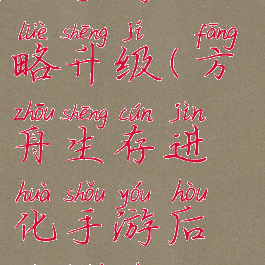 lüè shēng jí fāng
略升级(方
zhōu shēng cún jìn
舟生存进
huà shǒu yóu hòu
化手游后